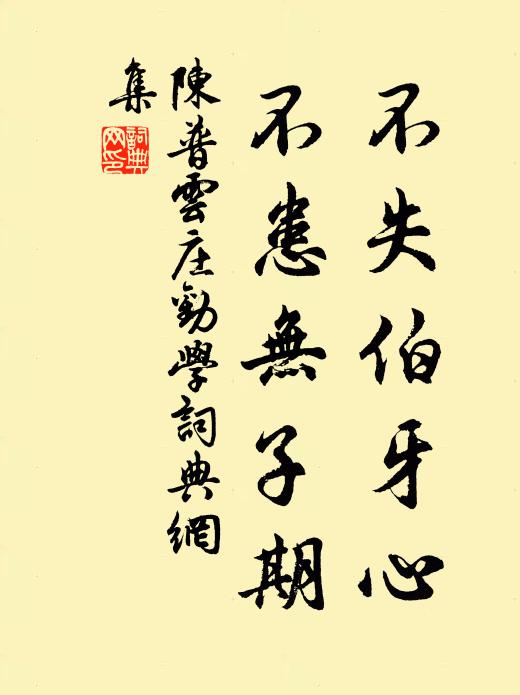 不失伯牙心
不患無子期
陳普雲庄勸學詞典網
集
詞典
网印